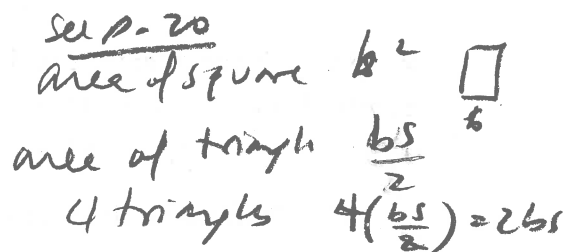 see p. 20
area of square b²
b
area of triangle bs/2
4 triangles 4(bs/2) = 2bs